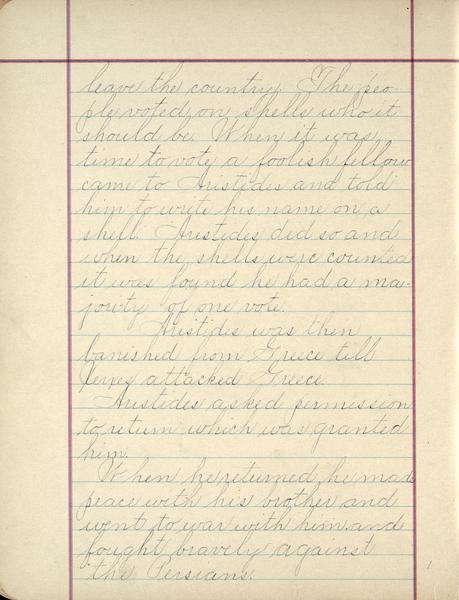 leave the country. The peo-
ple voted on shells who it
should be. When it was
time to vote a foolish fellow
came to Aristides and told
him to write his name on a
shell. Aristides did so and
when the shells were counted
it was found he had a ma-
jority of one vote.
Aristides was then
banished from Greece till
Xerxes attacked Greece.
Aristides asked permission
to return which was granted
him.
When he returned he made
peace with his brother and
went to war with him and
fought bravely against
the Persians.